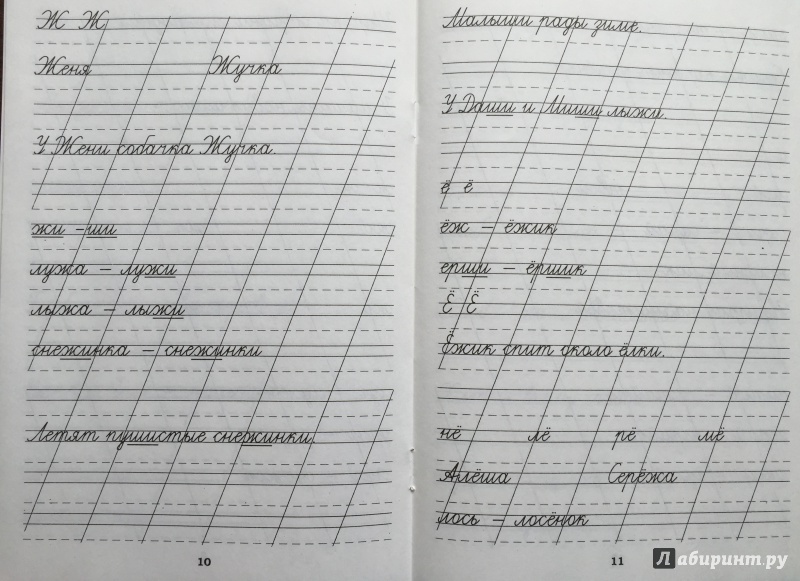 Ж Ж
Женя Жучка
У Жени собачка Жучка.
жи - ши
лужа – лужи
лыжа – лыжи
снежинка – снежинки
Летят пушистые снежинки.
10
Малыши рады зиме.
У Даши и Миши лыжи.
ё ё
ёж – ёжик
ерши – ёршик
Ё Ё
Ёжик спит около ёлки.
нё лё рё мё
Алёша Серёжа
лось – лосёнок
11
Лабиринт.ру